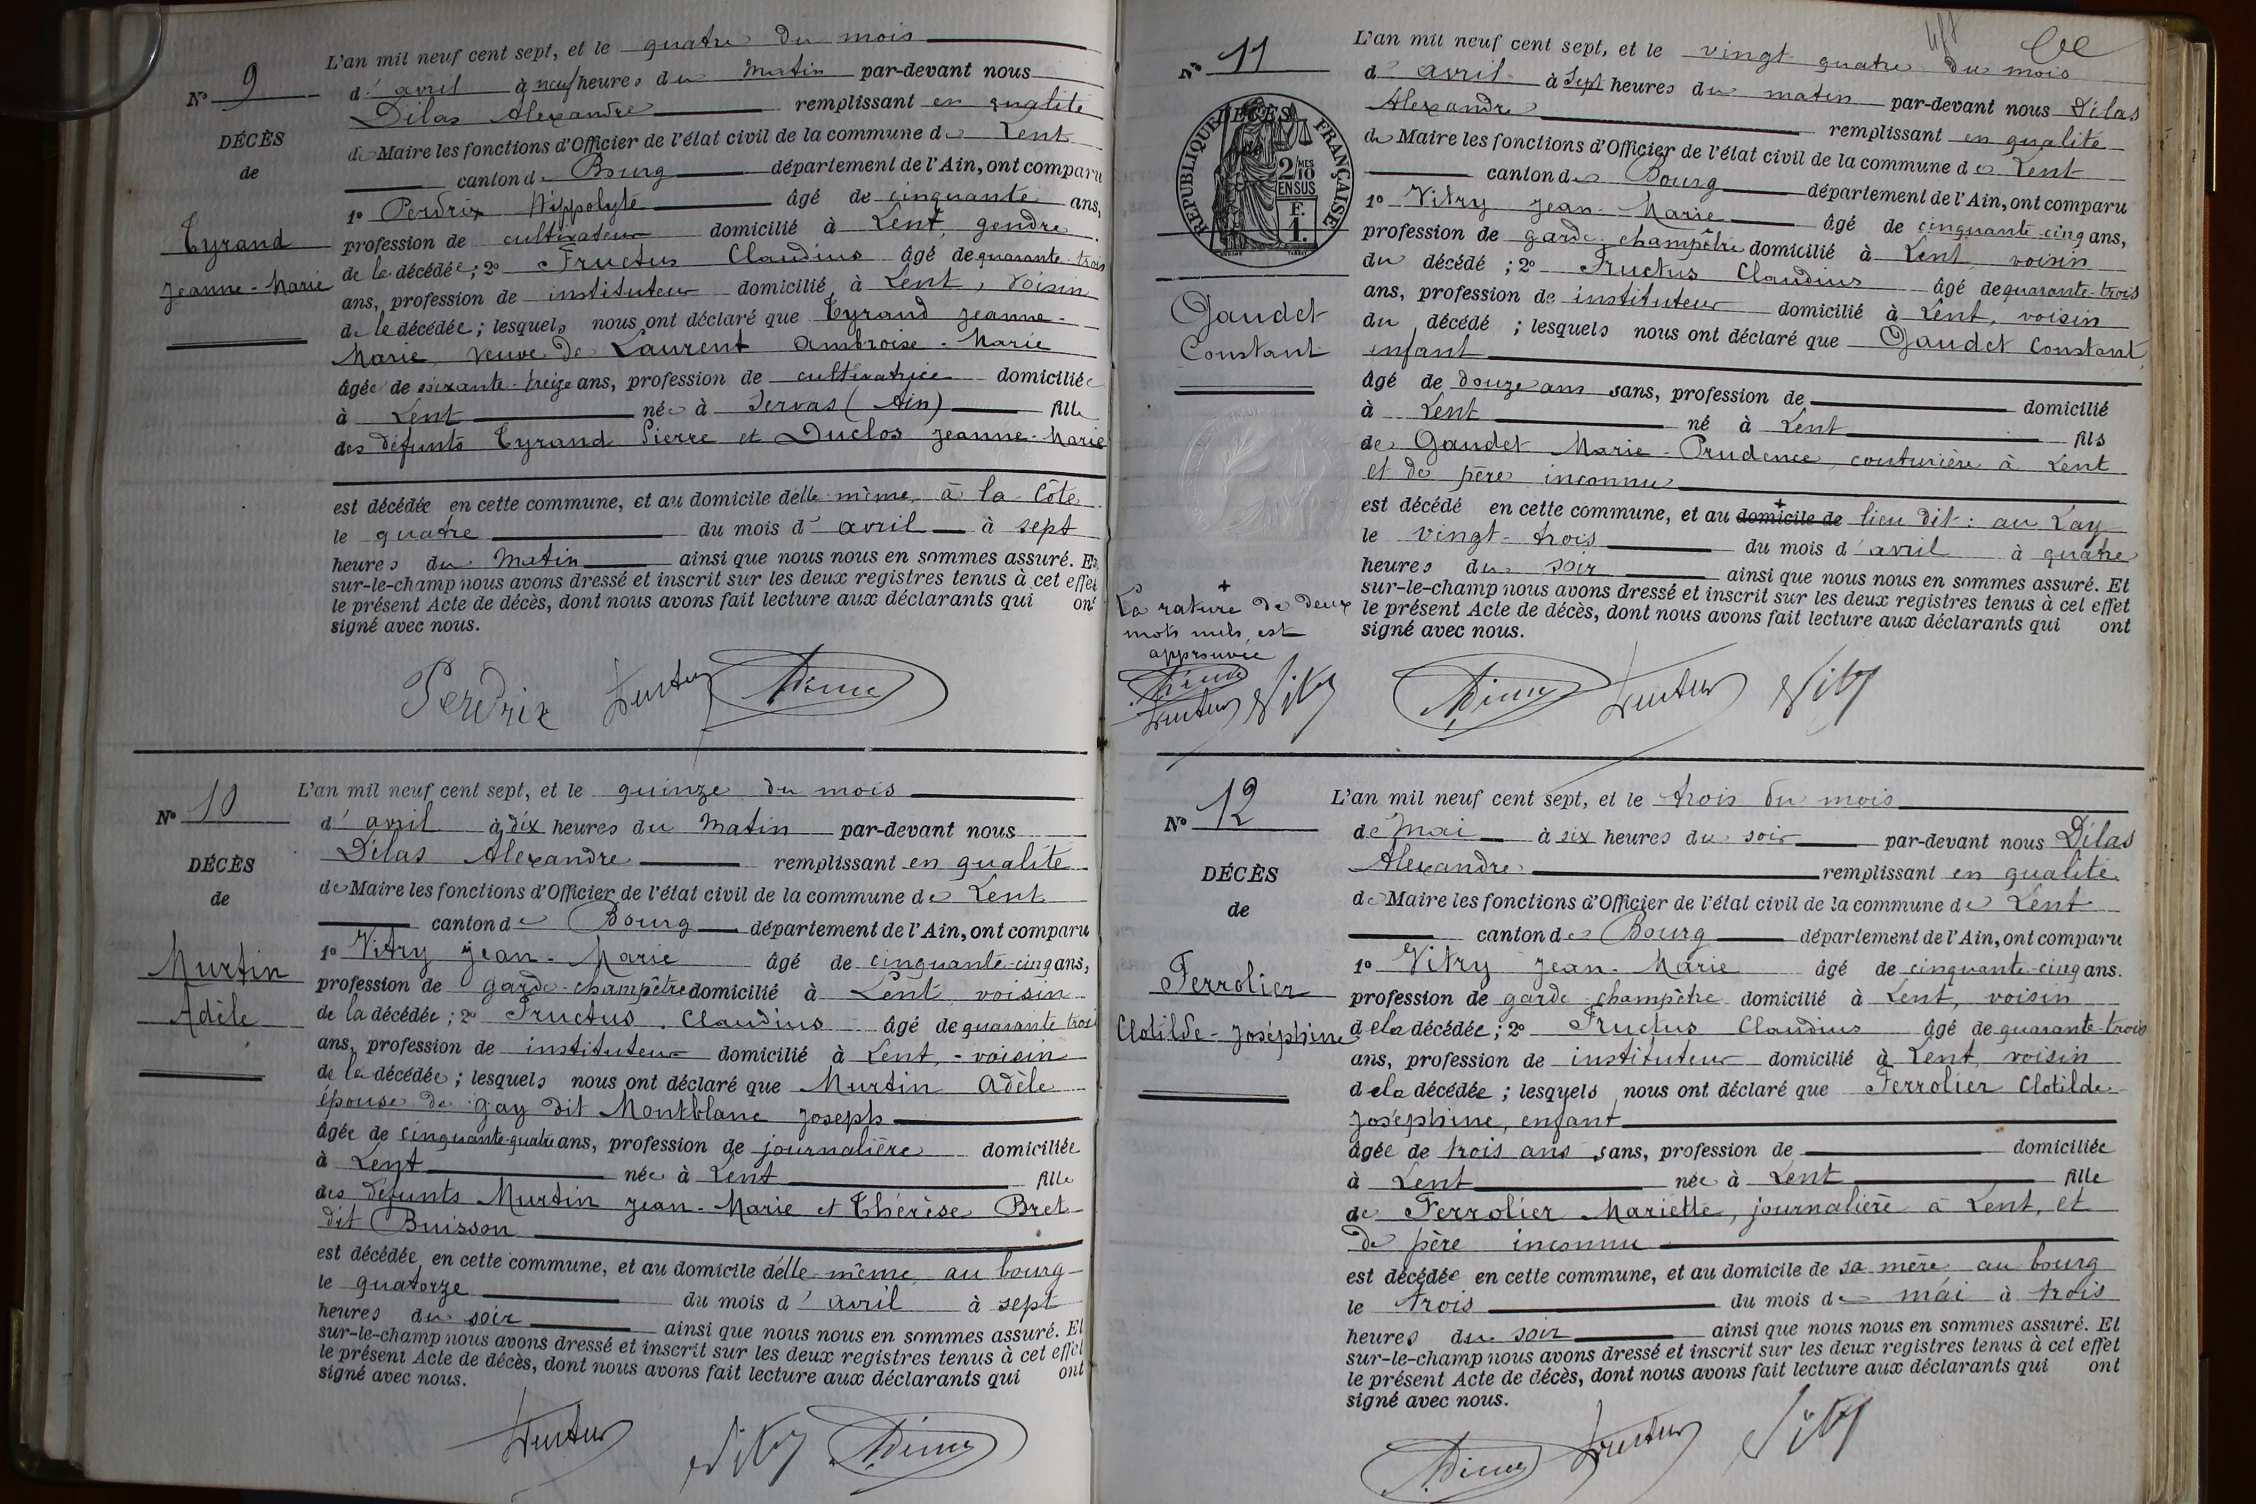 L'an mil neuf cent sept, et le quatre du mois
N° 9
d'avril à neuf heures du matin par-devant nous
Dilas Alexandre remplissant en qualité
DÉCÈS
de Maire les fonctions d'Officier de l'état civil de la commune de Lent
de
canton de Bourg département de l'Ain, ont comparu
1° Perdrix Hippolyte âgé de cinquante ans,
Tyrand
profession de cultivateur domicilié à Lent, gendre
Jeanne-Marie
de la décédée ; 2° Fructus Claudius âgé de quarante-trois
ans, profession de instituteur domicilié à Lent, voisin
de la décédée ; lesquels nous ont déclaré que Tyrand Jeanne-
Marie, veuve de Laurent Ambroise-Marie
âgée de soixante-treize ans, profession de cultivatrice domiciliée
à Lent née à Servas (Ain) fille
des défunts Tyrand Pierre et Duclos Jeanne-Marie
est décédée en cette commune, et au domicile d'elle-même, à la Côte
le quatre du mois d'avril à sept
heures du matin ainsi que nous nous en sommes assuré. Et
sur-le-champ nous avons dressé et inscrit sur les deux registres tenus à cet effet
le présent Acte de décès, dont nous avons fait lecture aux déclarants qui ont
signé avec nous.
Perdrix Fructus Dilas
N° 10
L'an mil neuf cent sept, et le quinze du mois
d'avril à dix heures du matin par-devant nous
Dilas Alexandre remplissant en qualité
DÉCÈS
de Maire les fonctions d'Officier de l'état civil de la commune de Lent
de
canton de Bourg département de l'Ain, ont comparu
1° Vitry Jean-Marie âgé de cinquante-cinq ans,
Murtin
profession de garde-champêtre domicilié à Lent, voisin
Adèle
de la décédée ; 2° Fructus Claudius âgé de quarante trois
ans, profession de instituteur domicilié à Lent, voisin
de la décédée ; lesquels nous ont déclaré que Murtin Adèle
épouse de Gay dit Montblanc Joseph
âgée de cinquante-quatre ans, profession de journalière domiciliée
à Lent née à Lent fille
des défunts Murtin Jean-Marie et Thérèse Bret
dit Buisson
est décédée en cette commune, et au domicile d'elle-même, au bourg
le quatorze du mois d'avril à sept
heures du soir ainsi que nous nous en sommes assuré. Et
sur-le-champ nous avons dressé et inscrit sur les deux registres tenus à cet effet
le présent Acte de décès, dont nous avons fait lecture aux déclarants qui ont
signé avec nous.
Fructus Vitry Dilas
N° 11
L'an mil neuf cent sept, et le vingt-quatre du mois
d'avril à sept heures du matin par-devant nous Dilas
Alexandre remplissant en qualité
DÉCÈS
RÉPUBLIQUE FRANÇAISE
2/10 MES
EN SUS
F.
1.
de Maire les fonctions d'Officier de l'état civil de la commune de Lent
canton de Bourg département de l'Ain, ont comparu
1° Vitry Jean-Marie âgé de cinquante-cinq ans,
profession de garde-champêtre domicilié à Lent, voisin
du décédé ; 2° Fructus Claudius âgé de quarante-trois
ans, profession de instituteur domicilié à Lent, voisin
Gaudet
Constant
du décédé ; lesquels nous ont déclaré que Gaudet Constant,
enfant
âgé de douze ans sans, profession de domicilié
à Lent né à Lent fils
de Gaudet Marie-Prudence, couturière à Lent
et de père inconnu
est décédé en cette commune, et au domicile de + lieu dit : au Lay
le vingt-trois du mois d'avril à quatre
heures du soir ainsi que nous nous en sommes assuré. Et
sur-le-champ nous avons dressé et inscrit sur les deux registres tenus à cet effet
le présent Acte de décès, dont nous avons fait lecture aux déclarants qui ont
signé avec nous.
+
La rature de deux
mots nuls, est
approuvée
Dilas
Fructus Vitry
Dilas Fructus Vitry
N° 12
L'an mil neuf cent sept, et le trois du mois
de Mai à six heures du soir par-devant nous Dilas
Alexandre remplissant en qualité
DÉCÈS
de Maire les fonctions d'Officier de l'état civil de la commune de Lent
de
canton de Bourg département de l'Ain, ont comparu
1° Vitry Jean-Marie âgé de cinquante-cinq ans.
Ferrolier
profession de garde-champêtre domicilié à Lent, voisin
Clotilde-Joséphine
de la décédée ; 2° Fructus Claudius âgé de quarante-trois
ans, profession de instituteur domicilié à Lent, voisin
de la décédée ; lesquels nous ont déclaré que Ferrolier Clotilde-
Joséphine, enfant
âgée de trois ans sans, profession de domiciliée
à Lent née à Lent fille
de Ferrolier Mariette, journalière à Lent, et
de père inconnu
est décédée en cette commune, et au domicile de sa mère au bourg
le trois du mois de mai à trois
heures du soir ainsi que nous nous en sommes assuré. Et
sur-le-champ nous avons dressé et inscrit sur les deux registres tenus à cet effet
le présent Acte de décès, dont nous avons fait lecture aux déclarants qui ont
signé avec nous.
Dilas Fructus Vitry